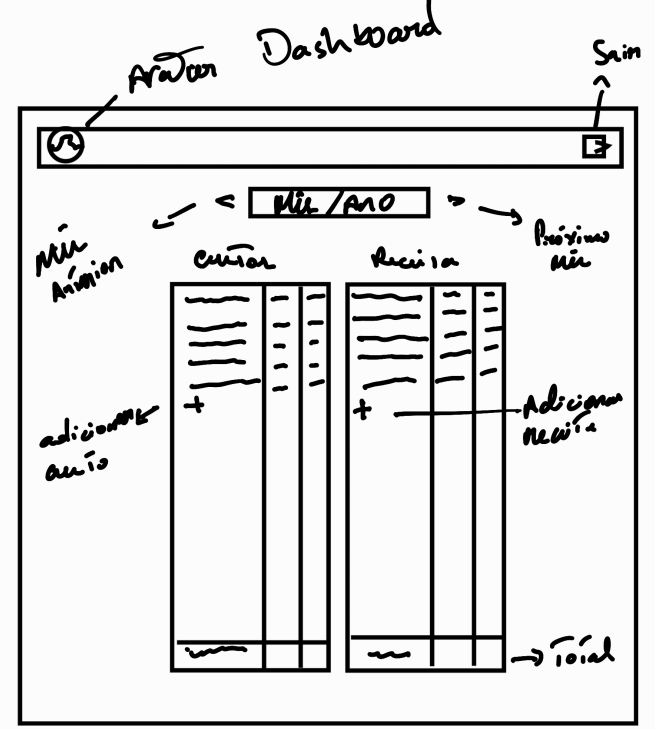 Dashboard
Avatar
Sair
< Mês/Ano >
Mês
Anterior
Próximo
Mês
Custos
Receita
+
+
adicionar
custo
Adicionar
receita
Total